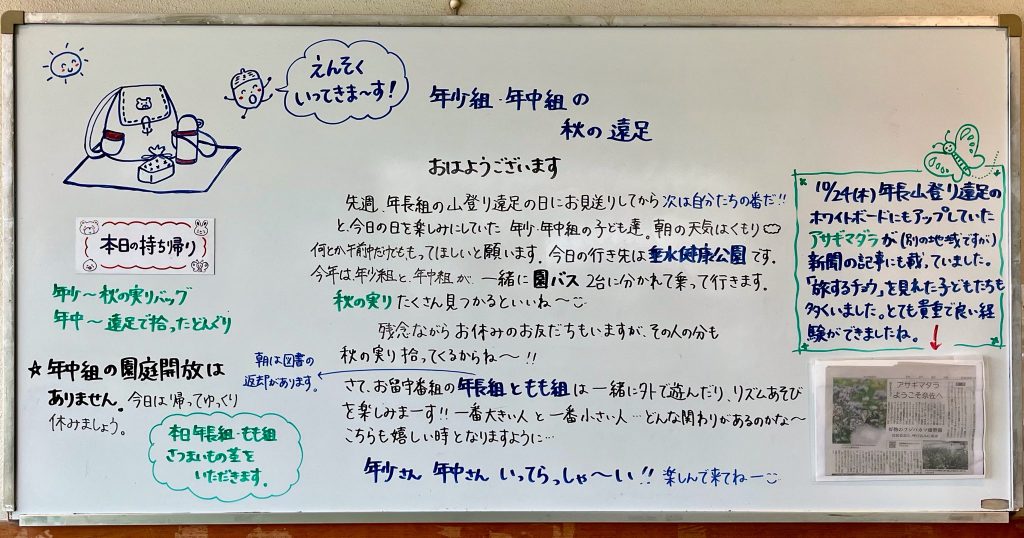 えんそく
いってきま〜す!
年少組・年中組の
秋の遠足
おはようございます
先週、年長組の山登り遠足の日にお見送りしてから次は自分たちの番だ!!
と、今日の日を楽しみにしていた 年少・年中組の子ども達。朝の天気はくもり
何とか午前中だけでももってほしいと願います。今日の行き先は垂水健康公園です。
今年は年少組と、年中組が、一緒に園バス2台に分かれて乗って行きます。
秋の実りたくさん見つかるといいね〜
残念ながらお休みのお友だちもいますが、その人の分も
秋の実り拾ってくるからね〜!!
さて、お留守番組の年長組ともも組は一緒に外で遊んだり、リズムあそび
を楽しみま〜す!!一番大きい人と一番小さい人…どんな関わりがあるのかな〜
こちらも嬉しい時となりますように…
年少さん 年中さん いってらっしゃ〜い!! 楽しんで来てねー
本日の持ち帰り
年少〜秋の実りバッグ
年中〜遠足で拾ったどんぐり
☆年中組の園庭開放は
ありません。今日は帰ってゆっくり
休みましょう。
朝は図書の
返却があります。
本日年長組・もも組
さつまいもの茎を
いただきます。
10/24(木)年長山登り遠足の
ホワイトボードにもアップしていた
アサギマダラが(別の地域ですが)
新聞の記事にも載っていました。
「旅するチョウ」を見れた子どもたちも
多くいました。とても貴重で良い経
験ができましたね。
アサギマダラ
ようこそ奈佐へ